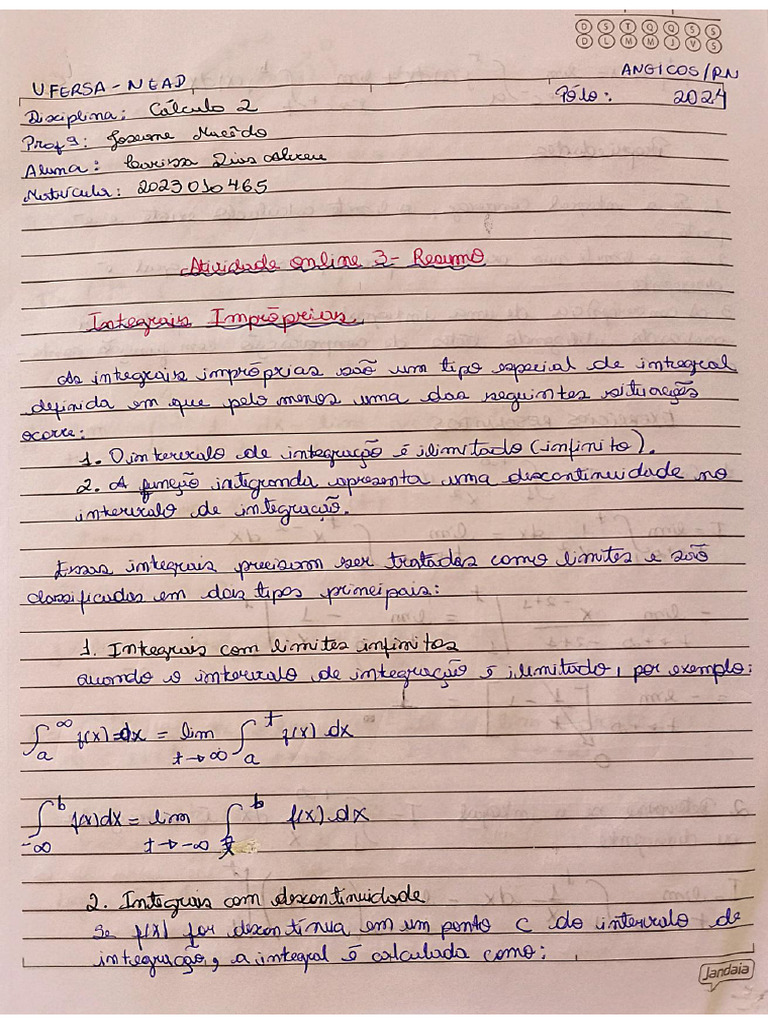 D S T Q Q S S
D L M M J V S
UFERSA - NEAD ANGICOS/RN
Disciplina: Cálculo 2 Pólo: 2024
Profª: Joseane Macêdo
Aluna: Larissa Dias Abreu
Matrícula: 2023010465
Atividade online 3 - Resumo
Integrais Impróprias
As integrais impróprias são um tipo especial de integral
definida em que pelo menos uma das seguintes situações
ocorre:
1. O intervalo de integração é ilimitado (infinito).
2. A função integranda apresenta uma descontinuidade no
intervalo de integração.
Essas integrais precisam ser tratadas como limites e são
classificadas em dois tipos principais:
1. Integrais com limites infinitos
quando o intervalo de integração é ilimitado, por exemplo:
∫_a^∞ f(x) dx = lim_{t→∞} ∫_a^t f(x) dx
∫_{-∞}^b f(x) dx = lim_{t→-∞} ∫_t^b f(x) dx
2. Integrais com descontinuidade
Se f(x) for descontínua em um ponto c do intervalo de
integração, a integral é calculada como:
Jandaia